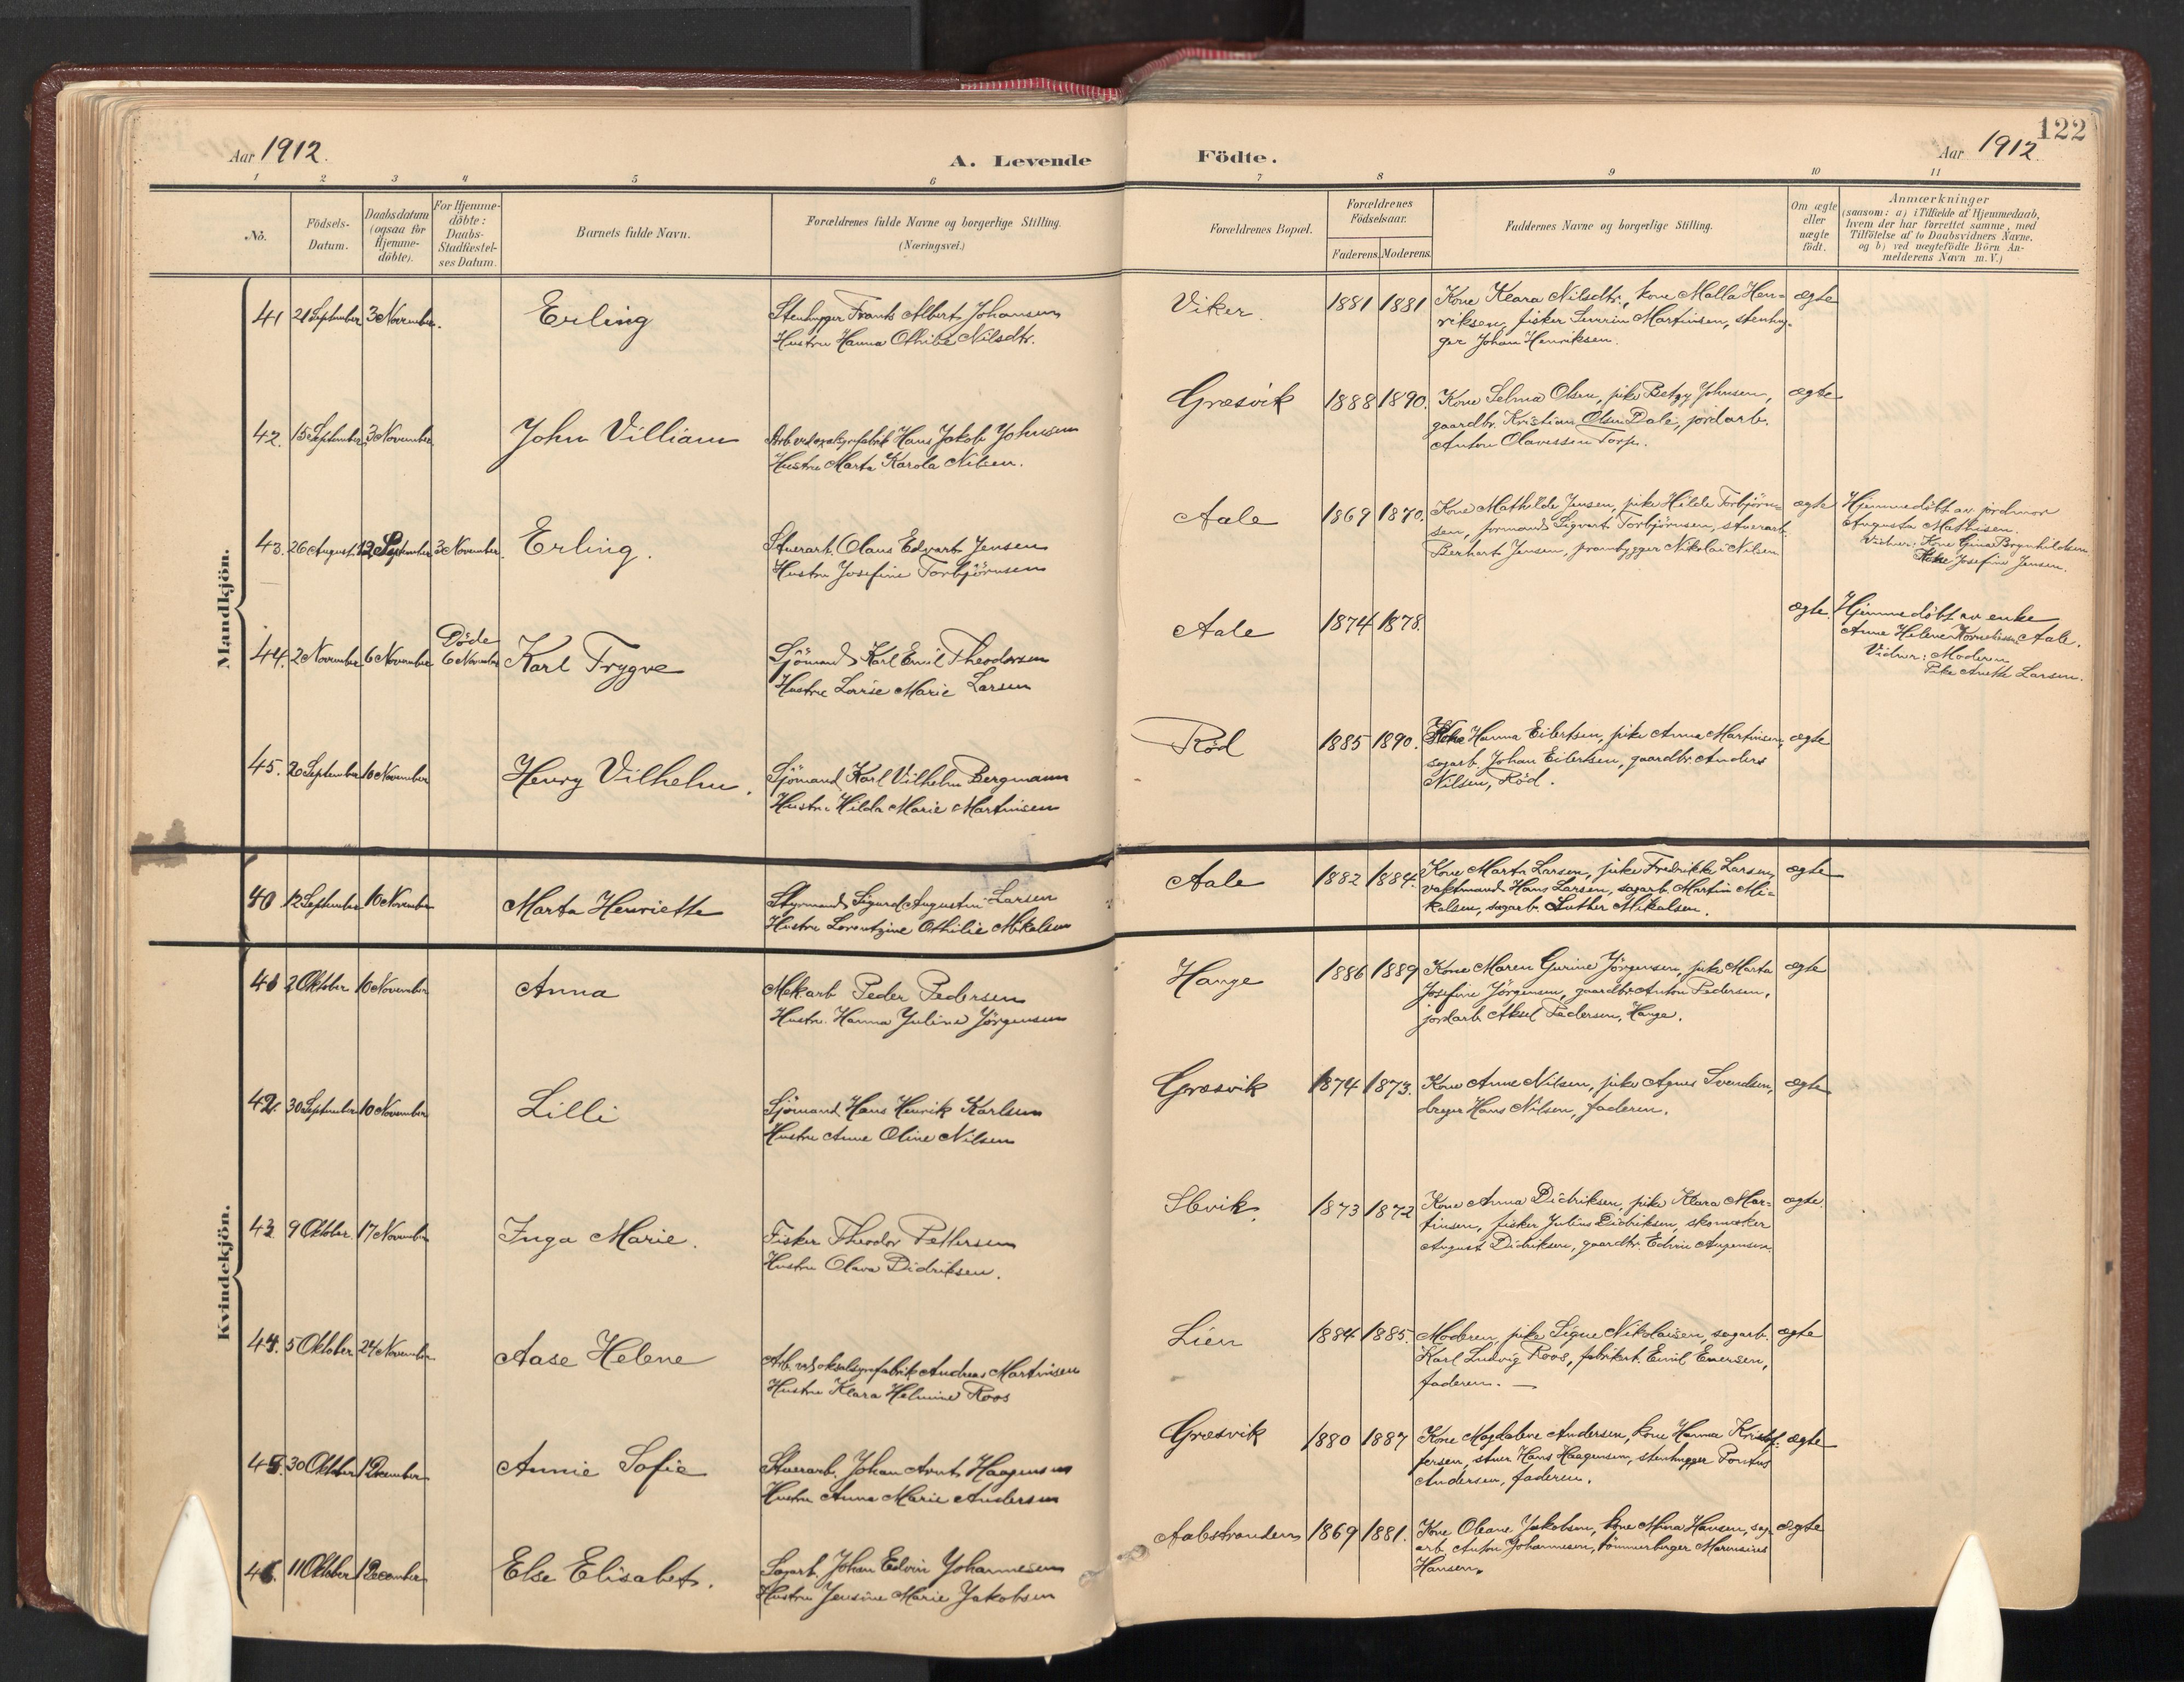 122
Aar 1912.
A. Levende
Födte.
Aar 1912.
1 2 3 4 5 6 7 8 9 10 11
No.
Födsels-
Datum.
Daabsdatum
(ogsaa for
Hjemme-
döbte).
For Hjemme-
döbte:
Daabs-
Stadfæstel-
ses Datum.
Barnets fulde Navn.
Forældrenes fulde Navne og borgerlige Stilling.
(Næringsvei.)
Forældrenes Bopæl.
Forældrenes
Födselsaar.
Faderens. Moderens.
Faddernes Navne og borgerlige Stilling.
Om ægte
eller
uægte
födt.
Anmærkninger
(saasom: a) i Tilfælde af Hjemmedaab,
hvem der har forrettet samme, med
Tilföielse af to Daabsvidners Navne,
og b) ved uægtefödte Börn An-
melderens Navn m. V.)
Mandkjön.
41 21 September 3 November. Erling
Stenhugger Frants Albert Johansen
Hustru Hanna Othilie Nilsdtr.
Viker. 1881 1881
Kone Klara Nilsdtr., kone Malla Hen-
riksen, fisker Severin Martinsen, stenhug-
ger Johan Henriksen.
ægte
42. 15 September 3 November John Villiam
Arb. ved oxalsyrefabrik Hans Jakob Johnsen
Hustru Marta Karola Nilsen.
Græsvik 1888 1890.
Kone Selma Olsen, pike Betzy Johnsen,
gaardbr. Kristian Olsen Dale, jordarb.
Anton Olavessen Torp.
ægte
43. 26 August. 12 September 3 November. Erling.
Stuerarb. Olaus Edvart Jensen
Hustru Josefine Torbjörnsen
Aale 1869 1870.
Kone Mathilde Jensen, pike Hilda Torbjörn-
sen, formand Sigvart Torbjörnsen, stuerarb.
Berhart Jensen, prambygger Nikolai Nilsen
ægte
Hjemmedöbt av jordmor
Augusta Mathisen.
Vidner: Kone Gina Brynhildsen.
Pike Josefine Jensen.
44. 2 November 6 November Döde
6 November Karl Trygve
Sjömand Karl Emil Theodorsen
Hustru Lovise Marie Larsen
Aale 1874 1878.
ægte.
Hjemmedöbt av enke
Anne Helene Kornelissen Aale.
Vidner: Moderen
Pike Anette Larsen.
45. 26 September 10 November Henry Vilhelm.
Sjömand Karl Vilhelm Bergmann
Hustru Hilda Marie Martinsen
Röd 1885 1890.
Kone Hanna Eilertsen, pike Anna Martinsen,
sagarb. Johan Eilertsen, gaardbr. Anders
Nilsen, Röd.
ægte
Kvindekjön.
40 12 September 10 November Marta Henriette
Styrmand Sigurd Augustin Larsen
Hustru Lorentzine Othilie Mikalsen
Aale 1882 1884.
Kone Marta Larsen, pike Fredrikke Larsen,
vaktmand Hans Larsen, sagarb. Martin Mi-
kalsen, sagarb. Luther Mikalsen.
ægte
41 2 Oktober 10 November Anna
Mek. arb. Peder Pedersen
Hustru Hanna Juline Jörgensen
Hauge 1886 1889
Kone Maren Gurine Jörgensen, pike Marta
Josefine Jörgensen, gaardbr. Anton Pedersen,
jordarb. Aksel Pedersen, Hauge.
ægte
42. 30 September 10 November Lilli
Sjömand Hans Henrik Karlsen
Hustru Anne Oline Nilsen
Græsvik 1874 1873.
Kone Anne Nilsen, pike Agnes Svendsen,
bryger Hans Nilsen, faderen.
ægte
43. 9 Oktober. 17 November Inga Marie.
Fisker Theodor Pettersen
Hustru Olava Didriksen.
Slevik. 1873 1872
Kone Anna Didriksen, pike Klara Mar-
tinsen, fisker Julius Didriksen, skomaker
August Didriksen, gaardbr. Edvin Aagensen.
ægte.
44. 5 Oktober 24 November Aase Helene
Arb. ved oksalsyrefabrik Andreas Martinsen
Hustru Klara Helmine Roos
Lien 1884 1885.
Moderen, pike Signe Nikolaisen, sagarb.
Karl Ludvig Roos, fabrikarb. Emil Enersen,
faderen. —
ægte
45. 30 Oktober 1 December Annie Sofie
Stuerarb. Johan Arnt Haagensen
Hustru Anna Marie Andersen
Græsvik 1880 1887
Kone Magdalene Andersen, kone Hanna Kristof-
fersen, stuer Hans Haagensen, stenhugger Pontus
Andersen, faderen.
ægte
46. 11 Oktober 1 December Else Elisabet.
Sagarb. Johan Edvin Johannesen
Hustru Jensine Marie Jakobsen
Aalestranden 1869 1881.
Kone Oleane Jakobsen, kone Mina Hansen, sag-
arb. Anton Johannesen, tömmerberger Marensius
Hansen.
ægte